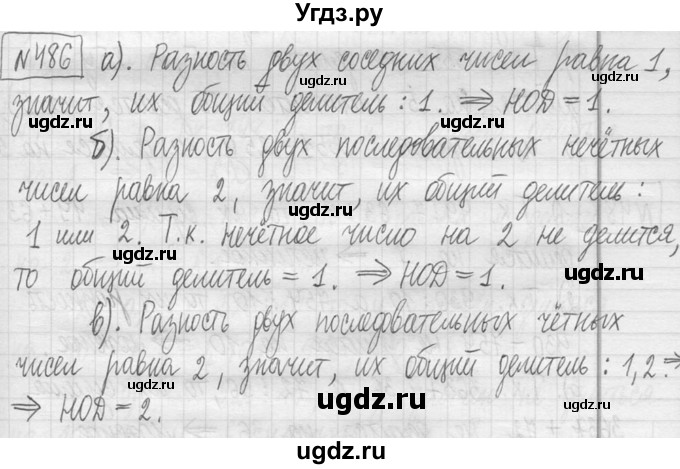 Угдз.ру
№486 а). Разность двух соседних чисел равна 1,
значит, их общий делитель: 1. ⇒ НОД = 1.
б). Разность двух последовательных нечётных
чисел равна 2, значит, их общий делитель:
1 или 2. Т.к. нечётное число на 2 не делится,
то общий делитель = 1. ⇒ НОД = 1.
в). Разность двух последовательных чётных
чисел равна 2, значит, их общий делитель: 1,2. ⇒
⇒ НОД = 2.
ugdz.ru
ugdz.ru
ugdz.ru
ugdz.ru
ugdz.ru
ugdz.ru
ugdz.ru
ugdz.ru
ugdz.ru
ugdz.ru
ugdz.ru
ugdz.ru